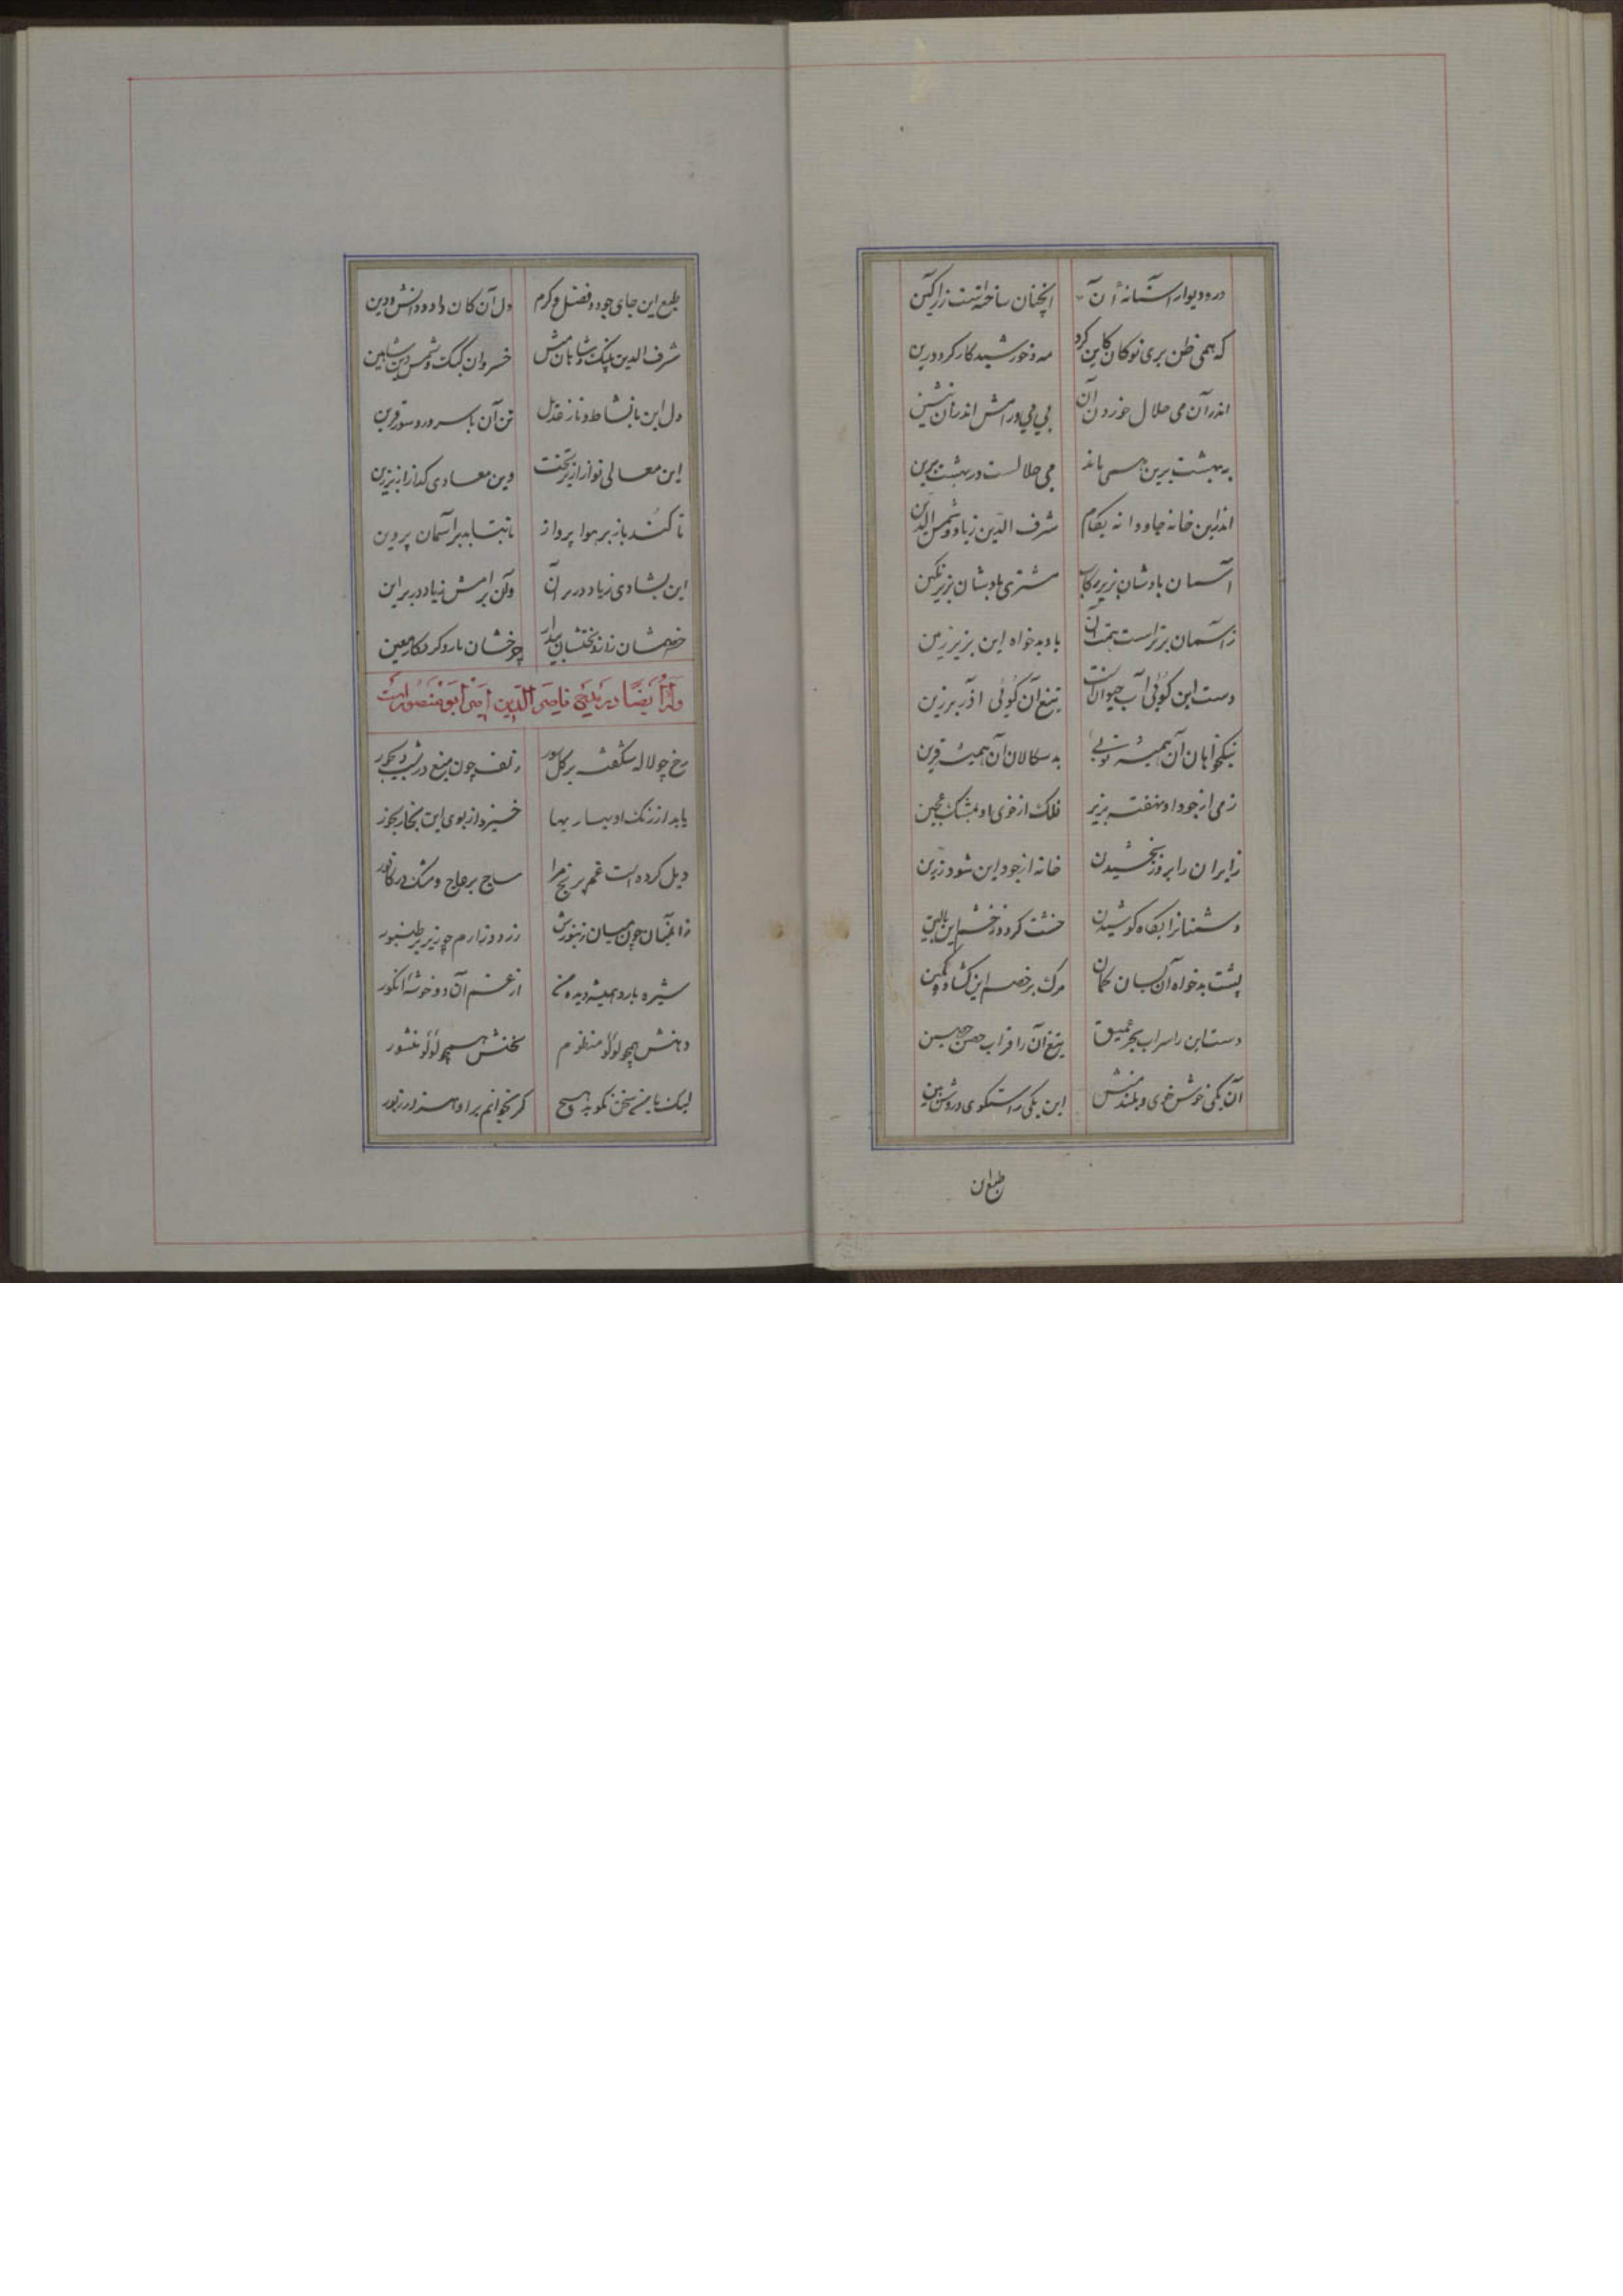 در و دیوار آستانهٔ آن آنچنان ساخته است زرآگین
که همی ظن بری تو کان کاین کرد مه و خورشید کار کرد درین
اندر آن می حلال خوردن آن بی می و رامش اندر آن منشین
به بهشت برین همی ماند می حلالست در بهشت برین
اندر این خانه جاودانه بکام شرف الدین زیاد و شمس الدین
آسمان بادشان بزیر رکاب مشتری بادشان بزیر نگین
ز آسمان برتر است همت آن باد بدخواه این بزیر زمین
دست این گوئی آب حیوان است تیغ آن گوئی آذر برزین
نیکخواهان آن همیشه بدسکالان آن همیشه قرین
زمی از جود او نهفته بزیر فلک از خوی او بمشک عجین
زایران را بروز بخشیدن خانه از جود این شود زرین
دشمنانرا بگاه کوشیدن خشت گردد ز خشم این بالین
پشت بدخواه آن بسان کمان مرگ بر خصم این گشاده کمین
دست این را سراب بحر عمیق تیغ آن را تراب حصن حصین
آن یکی خوش خوی و بلند منش این یکی راستگوی و روشن بین
طبع این
طبع این جای جود و فضل و کرم دل آن کان داد و دانش و دین
شرف الدین پلنگ و شاهان میش خسروان کبک و شمس دین شاهین
دل این با نشاط و ناز عدیل تن آن با سرور و سور قرین
این معالی نواز از بر تخت وین معادی گداز از بر زین
تا کند باز بر هوا پرواز تا بتابد بر آسمان پروین
این بشادی زیاد در بر آن وآن برامش زیاد در بر این
خصمشان زار و بختشان بیدار چرخشان یار و کردگار معین
وله ایضا در مدیح قاضی الدین ابو منصور است
رخ چو لاله شکفته بر گل سور زلف چون میغ در شب دیجور
یابد از رنگ او بهار بها خیزد از بوی این بخار بخور
دیل کرده است غم برنج مرا ساج بر عاج و مشک در کافور
زا میان چون میان زنبورش زرد و زارم چو زیر بر طنبور
شیره بارد همیشه دیده من از غم آن دو خوشه انگور
دهنش همچو لؤلؤ منظوم سخنش همچو لؤلؤ منثور
لیک با من سخن نگوید هیچ گر بخوانم بر او هزار زبور